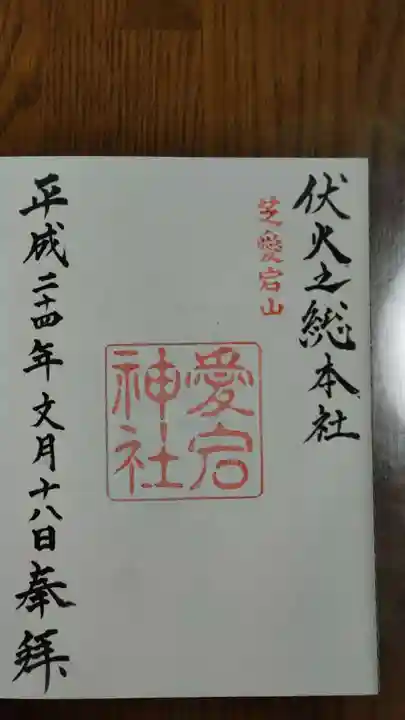 伏火之総本社
芝愛宕山
愛宕
神社
平成二十四年文月十八日奉拜